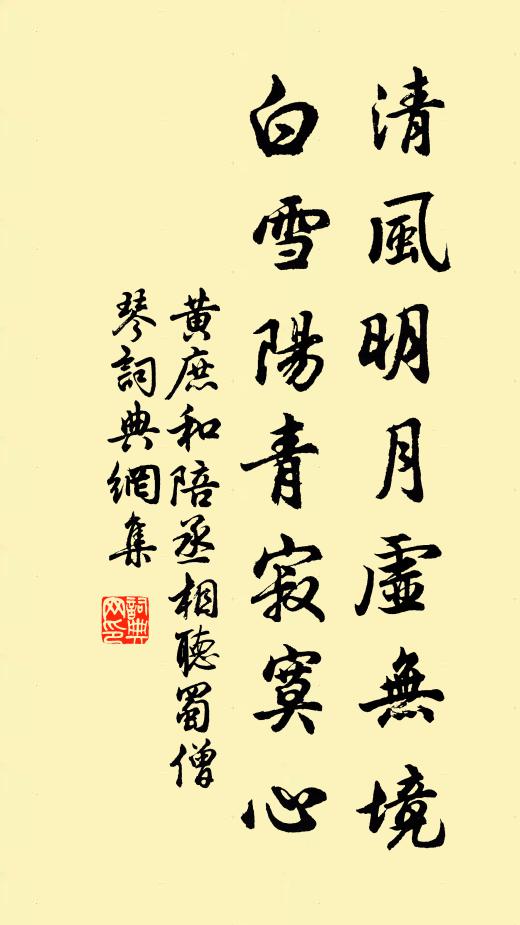 清風明月虛無境
白雪陽青寂寞心
黃庶和陪丞相聽蜀僧
琴詞典網集
詞典
网印